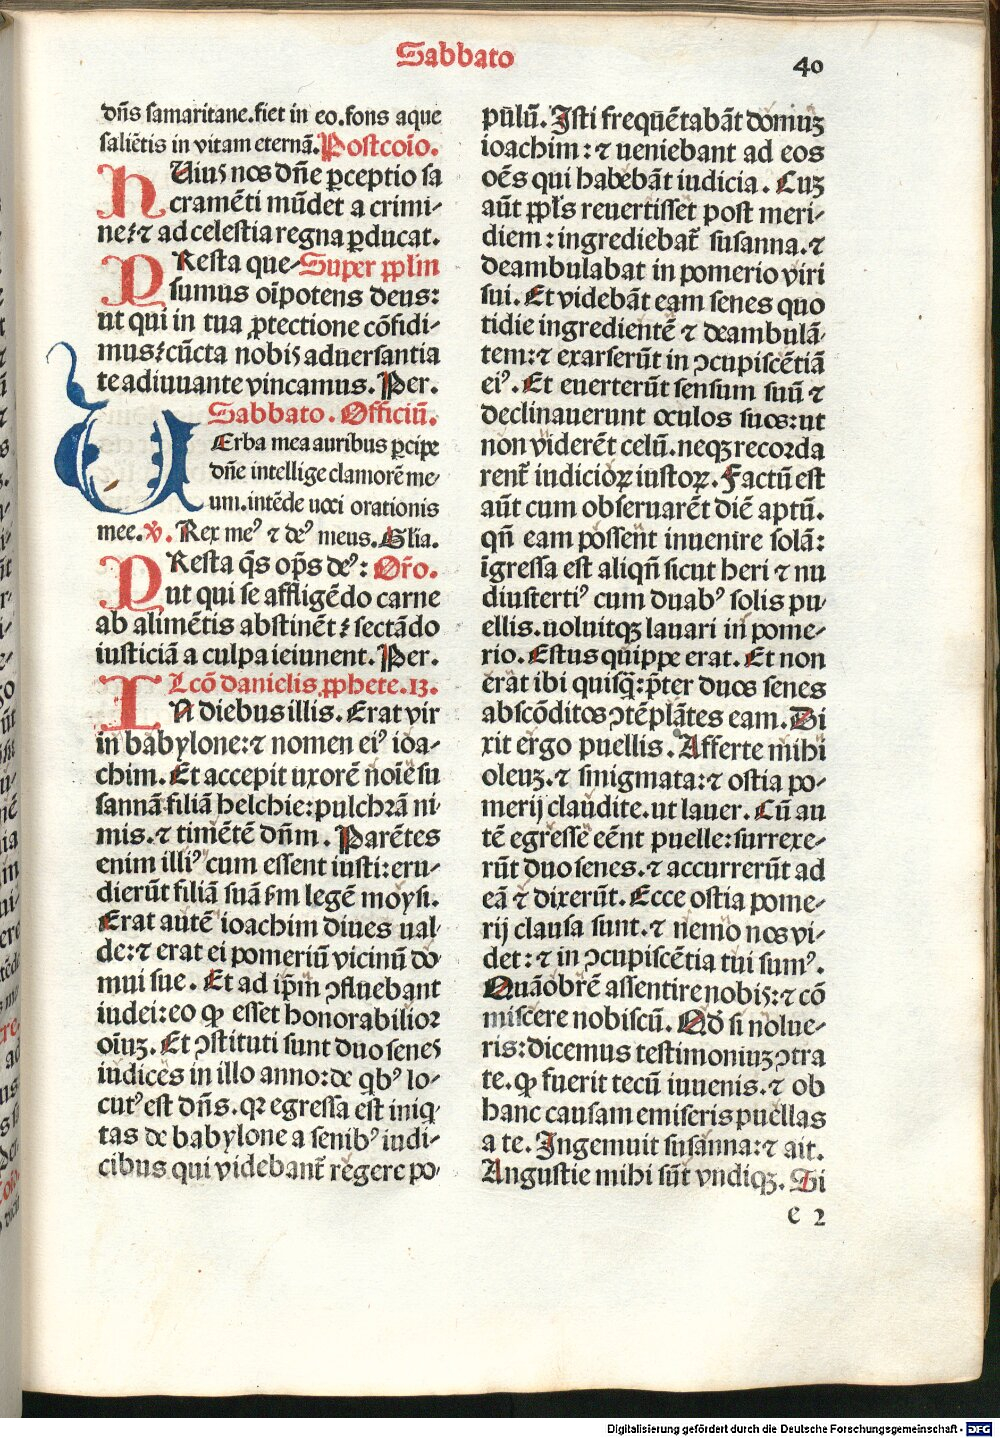 Sabbato
40
dn̄s samaritane.fiet in eo.fons aque
saliētis in vitam eternā.Postcōio.
hUius nos dn̄e ꝑceptio sa
cramēti mūdet a crimi-
ne:⁊ ad celestia regna ꝑducat.
PResta que-Super pp̄lm
sumus oīpotens deus:
ut qui in tua ꝓtectione cōfidi-
mus:cūcta nobis aduersantia
te adiuuante vincamus. Per.
Sabbato. Officiū.
UErba mea auribus ꝑcipe
dn̄e intellige clamorē me-
um.intēde uoci orationis
mee.℣. Rex meꝰ ⁊ deꝰ meus.Glia.
PResta q̄s op̄s deꝰ: Or̄o.
ut qui se affligēdo carne
ab alimētis abstinēt: sectādo
iusticiā a culpa ieiunent. Per.
Lc̄o danielis ꝓphete.13.
IN diebus illis. Erat vir
in babylone:⁊ nomen eiꝰ ioa-
chim. Et accepit uxorē noīe su
sannā filiā helchie:pulchrā ni-
mis.⁊ timētē dn̄m. Parētes
enim illiꝰ cum essent iusti:eru-
dierūt filiā suā s̄m legē moysi.
Erat autē ioachim diues ual-
de:⁊ erat ei pomeriū vicinū do
mui sue. Et ad ip̄m ꝯfluebant
iudei:eo ꝙ esset honorabilior
oīuꝫ. Et ꝯstituti sunt duo senes
iudices in illo anno:de qbꝰ lo-
cutꝰ est dn̄s.qꝛ egressa est iniq-
tas de babylone a senibꝰ iudi-
cibus qui videbant̄ regere po-
pūlū. Isti frequētabāt domuꝫ
ioachim:⁊ ueniebant ad eos
oēs qui habebāt iudicia. Cuꝫ
aūt pp̄ls reuertisset post meri-
diem:ingrediebat̄ susanna.⁊
deambulabat in pomerio viri
sui. Et videbāt eam senes quo
tidie ingredientē ⁊ deambulā-
tem:⁊ exarserūt in ꝯcupiscētiā
eiꝰ. Et euerterūt sensum suū ⁊
declinauerunt oculos suos:ut
non viderēt celū.neqꝫ recorda
rent̄ iudicioꝝ iustoꝝ. Factū est
aūt cum obseruarēt diē aptū.
qn̄ eam possent inuenire solā:
īgressa est aliqn̄ sicut heri ⁊ nu
diustertiꝰ cum duabꝰ solis pu-
ellis.uoluitqꝫ lauari in pome-
rio. Estus quippe erat. Et non
erat ibi quisq̄:p̄ter duos senes
abscōditos ꝯtēplātes eam. Di
xit ergo puellis. Afferte mihi
oleuꝫ.⁊ smigmata:⁊ ostia po-
merij claudite.ut lauer. Cū au
tē egresse eēnt puelle:surrexe-
rūt duo senes.⁊ accurrerūt ad
eā ⁊ dixerūt. Ecce ostia pome-
rij clausa sunt.⁊ nemo nos vi-
det:⁊ in ꝯcupiscētia tui sumꝰ.
Quāobrē assentire nobis:⁊ cō
miscere nobiscū. Qd̄ si nolue-
ris:dicemus testimoniuꝫ ꝯtra
te.ꝙ fuerit tecū iuuenis.⁊ ob
hanc causam emiseris puellas
a te. Ingemuit susanna:⁊ ait.
Angustie mihi sūt vndiqꝫ. Si
e 2
Digitalisierung gefördert durch die Deutsche Forschungsgemeinschaft - DFG